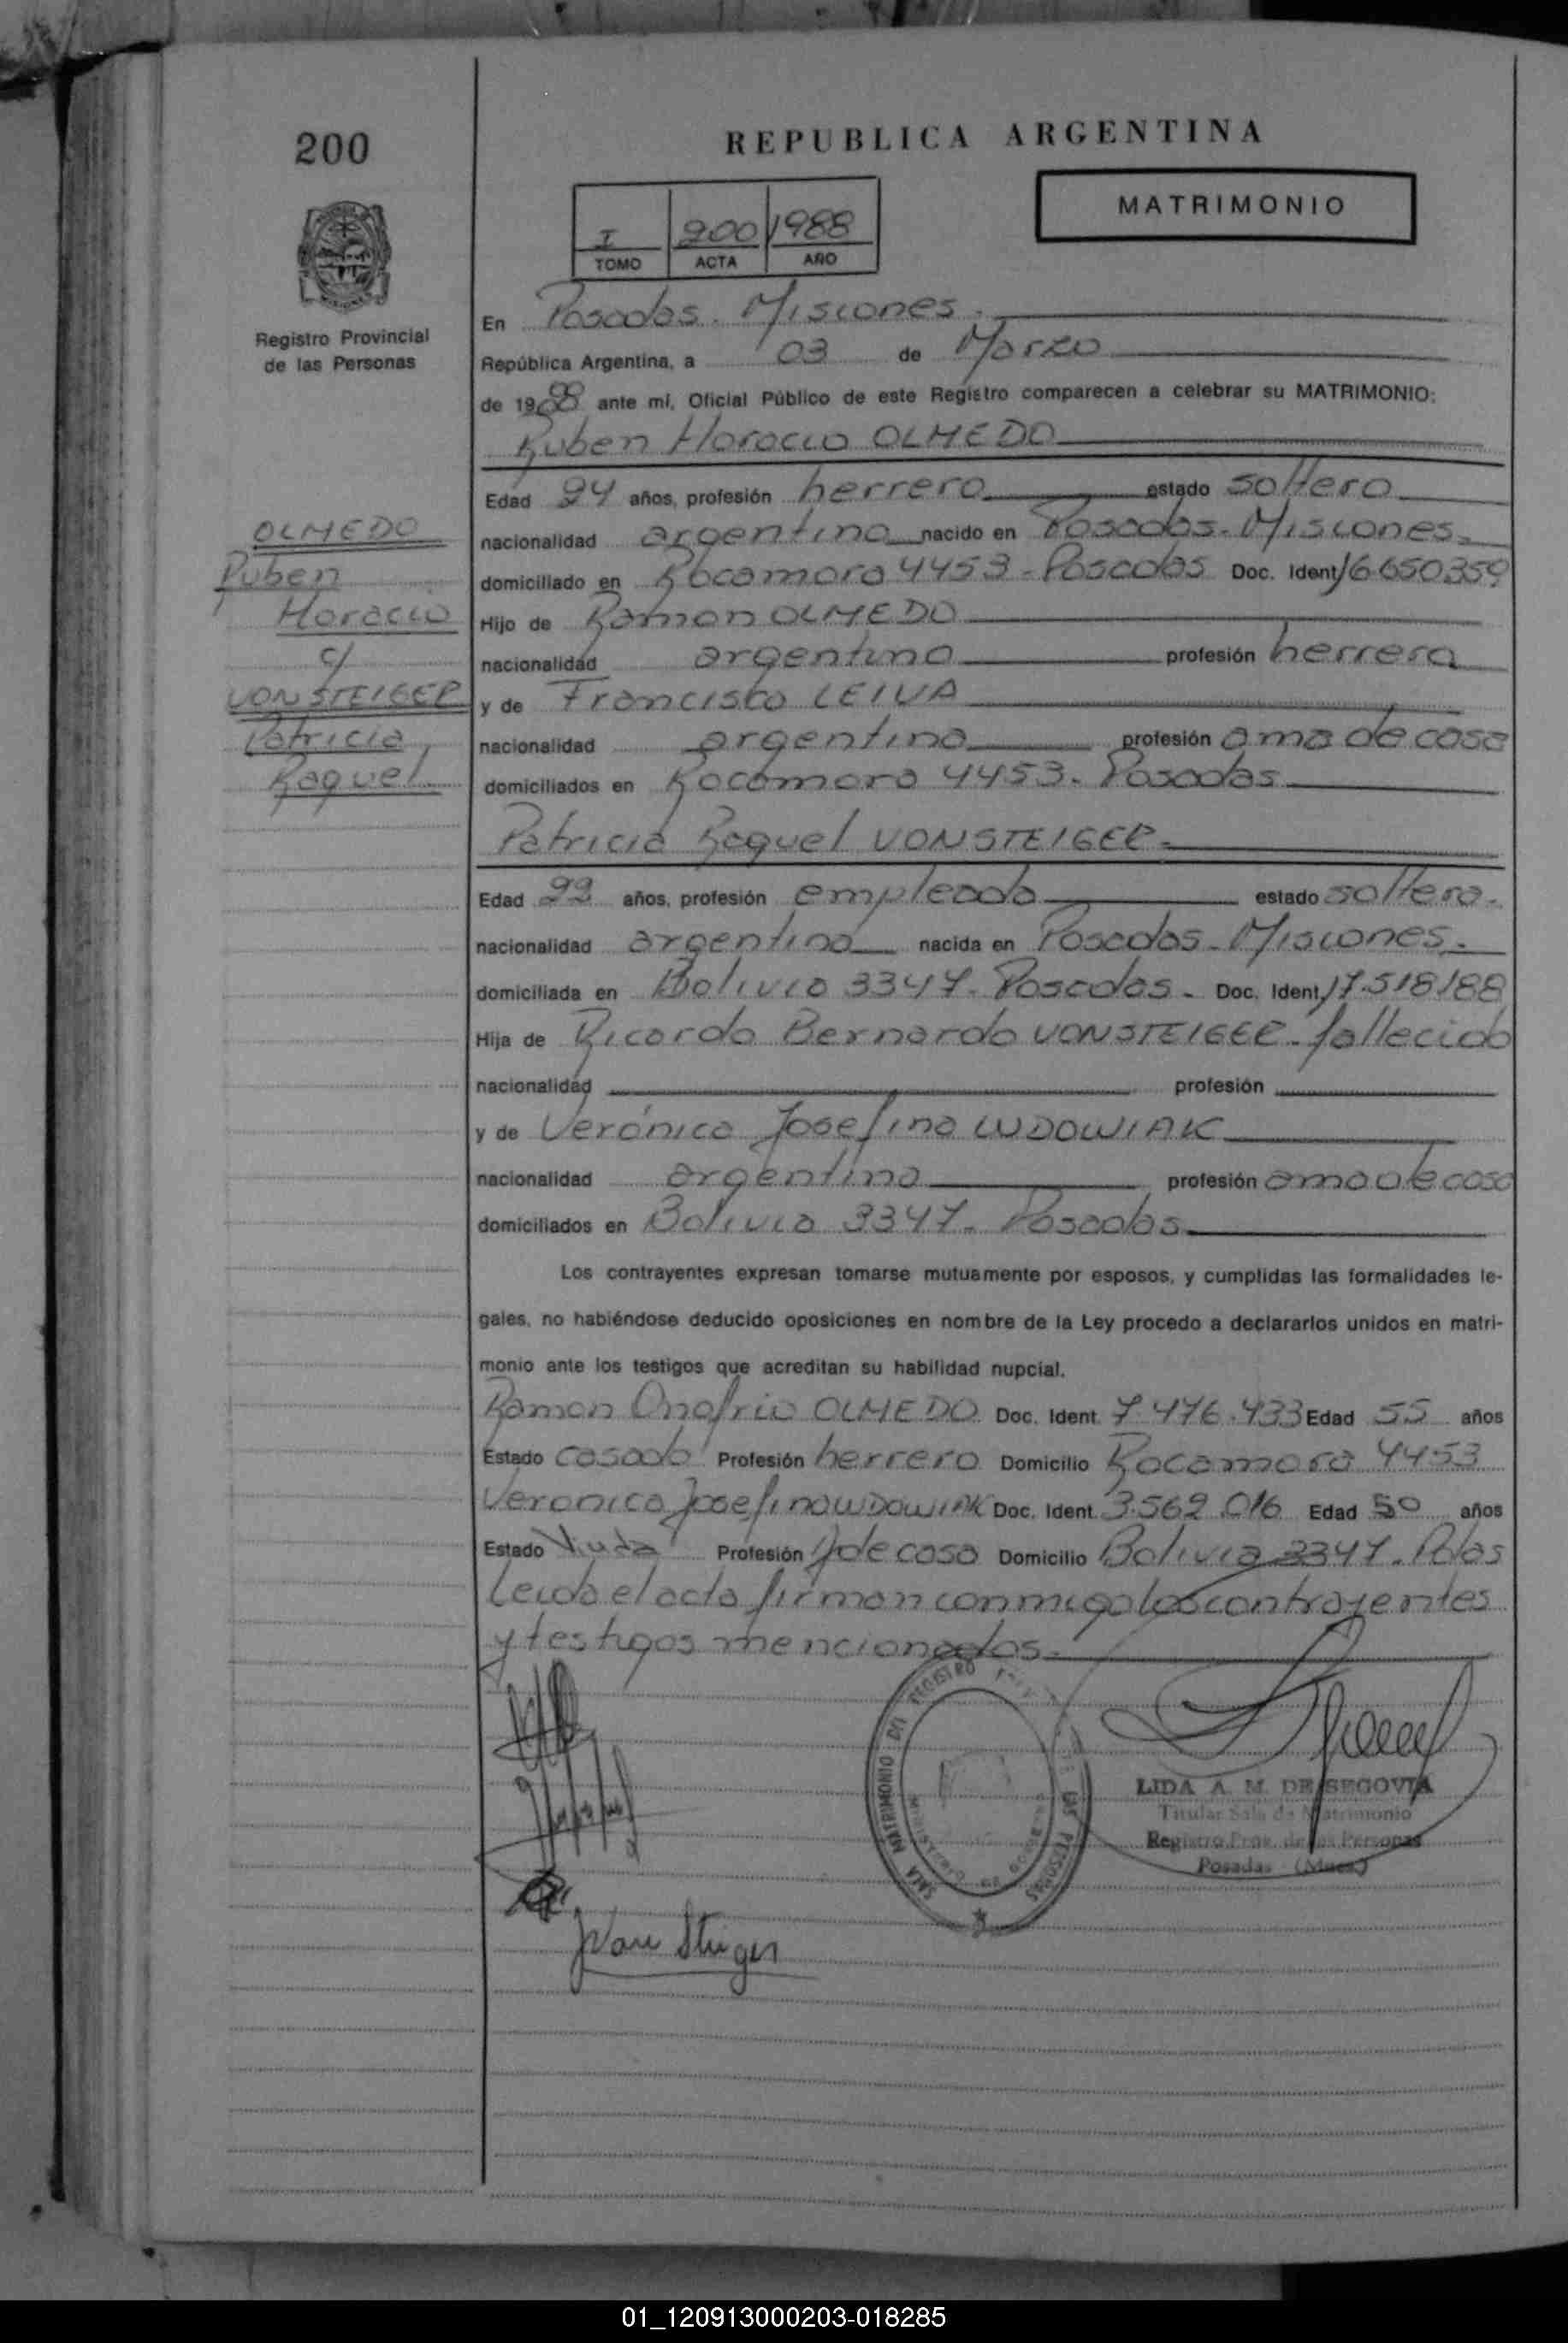 200
REPUBLICA ARGENTINA
MATRIMONIO
I 200 1988
TOMO ACTA AÑO
Registro Provincial
de las Personas
En Posadas. Misiones.
República Argentina, a 03 de Marzo
de 1988 ante mí, Oficial Público de este Registro comparecen a celebrar su MATRIMONIO:
Ruben Horacio OLMEDO
Edad 24 años, profesión herrero estado soltero
nacionalidad argentina nacido en Posadas-Misiones.
domiciliado en Rocamora 4453-Posadas Doc. Ident. 16650359
Hijo de Ramon OLMEDO
nacionalidad argentina profesión herrero
y de Francisca LEIVA
nacionalidad argentina profesión ama de casa
domiciliados en Rocamora 4453. Posadas
OLMEDO
Ruben
Horacio
c/
VONSTEIGER
Patricia
Raquel
Patricia Raquel VONSTEIGER.
Edad 22 años, profesión empleada estado soltera.
nacionalidad argentina nacida en Posadas-Misiones.
domiciliada en Bolivia 3347. Posadas. Doc. Ident. 17.518188
Hija de Ricardo Bernardo VONSTEIGER-fallecido
nacionalidad profesión
y de Verónica Josefina WDOWIAK
nacionalidad argentina profesión ama de casa
domiciliados en Bolivia 3347. Posadas
Los contrayentes expresan tomarse mutuamente por esposos, y cumplidas las formalidades le-
gales, no habiéndose deducido oposiciones en nombre de la Ley procedo a declararlos unidos en matri-
monio ante los testigos que acreditan su habilidad nupcial.
Ramon Onofrio OLMEDO Doc. Ident. 7.476.433 Edad 55 años
Estado casado Profesión herrero Domicilio Rocamora 4453
Veronica Josefina WDOWIAK Doc. Ident. 3.562.016 Edad 50 años
Estado Viuda Profesión A de casa Domicilio Bolivia 3347. Pdas
Leida el acta firman conmigo los contrayentes
y testigos mencionados.
SALA MATRIMONIO DEL REGISTRO DE LAS PERSONAS
LIDA A. M. DE SEGOVIA
Titular Sala de Matrimonio
Registro Prov. de las Personas
Posadas (Mnes)
Von Steiger
01_120913000203-018285